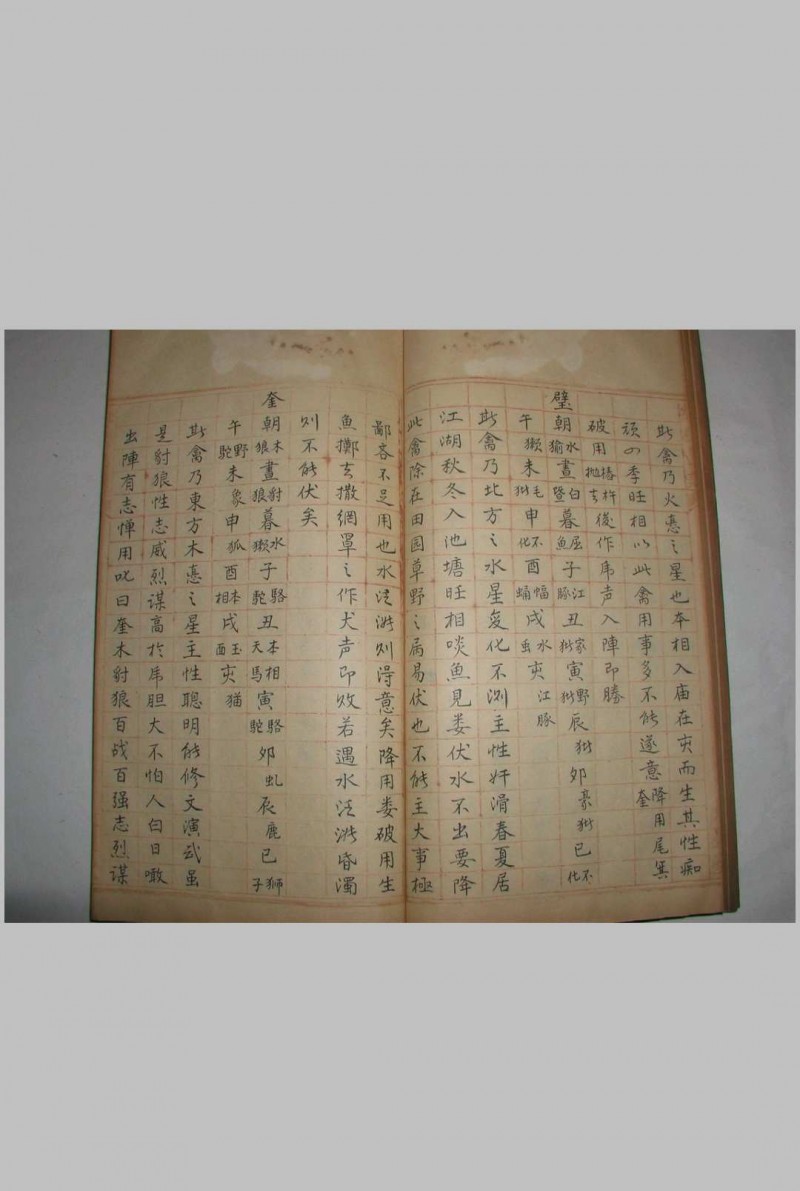 此禽乃火惪之星也本相入庙在亥而生其性痴
顽四季旺相以此禽用事多不能遂意降用尾箕奎
破用抛去椿杵後作虎声入陣即勝
壁朝水㺄晝白暨暮屈魚子江豚丑家㺃寅野㺃辰㺃夘豪㺃巳不化
午獭未毛㺃申不化酉蝠蝻戌水䖝亥江豚
此禽乃北方之水星変化不测主性奸滑春夏居
江湖秋冬入池塘旺相啖魚見娄伏水不出要降
此禽除在田园草野之扄易伏也不能主大事極
鄙吝不足用也水泛㳠则淂意矣降用娄破用生
魚擲去撒網罩之作犬声即败若遇水泛㳠昏濁
则不能伏矣
奎朝木狼晝豺狼暮水獭子駱駝丑本相天馬寅駱駝夘虬辰鹿巳獅子
午野駝未象申狐酉本相戌玉面亥猫
此禽乃東方木惪之星主性聰明能修文演武虽
是豺狼性志威烈谋高於虎胆大不怕人白日瞰
出陣有志惮用叱曰奎木豺狼百战百强志烈谋